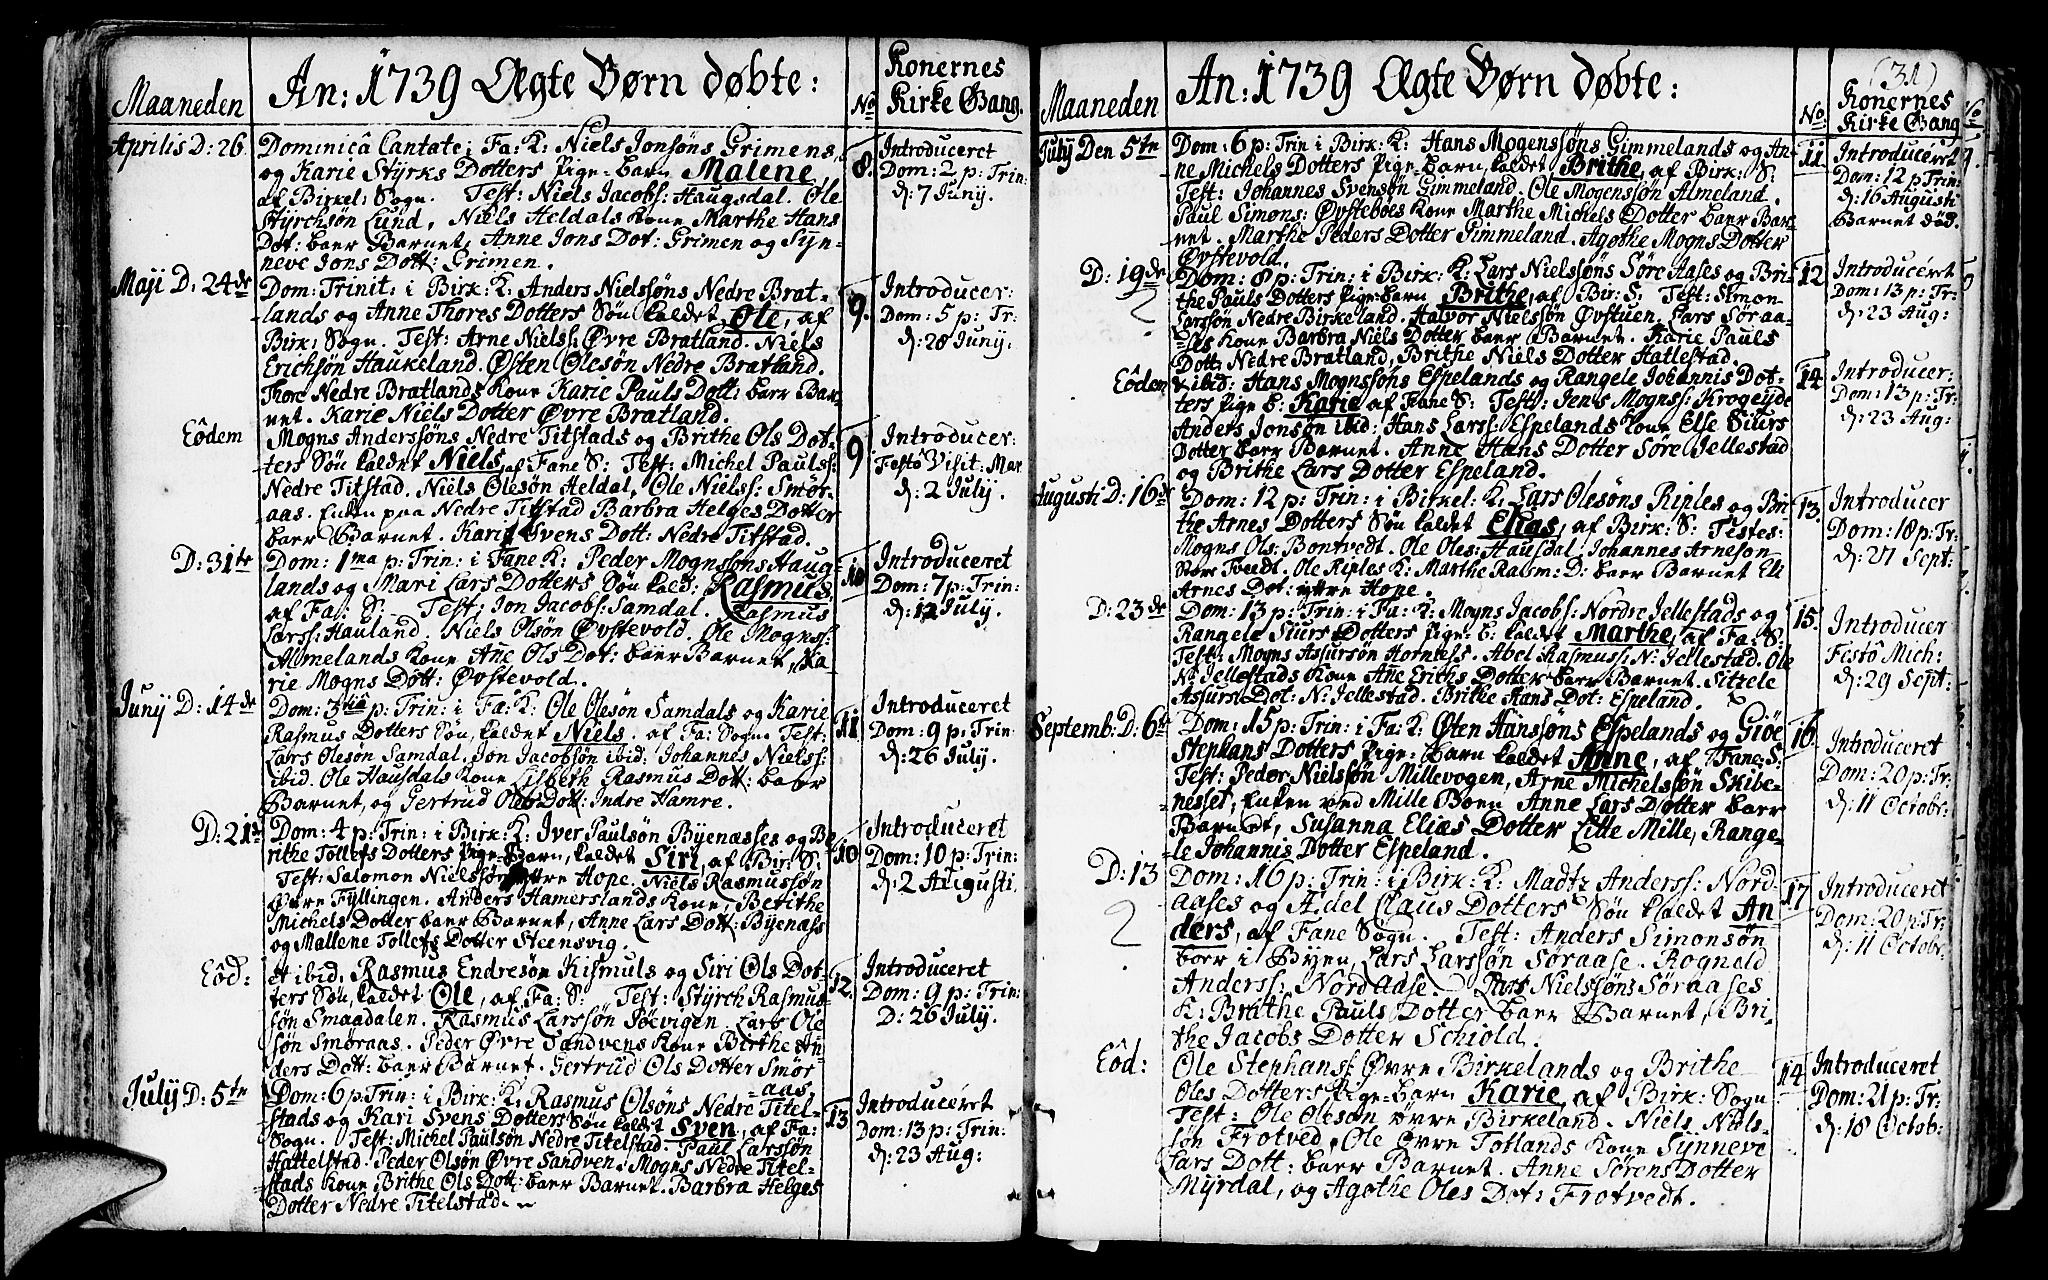 Maaneden
An: 1739 Ægte Børn døbte:
No
Konernes
Kirke Gang.
Aprilis D: 26
Dominicâ Cantate i Fa: K: Niels Jonsøns Grimens,
og Karie Styrks Dotters Pige-barn Malene
af Birkel: Sogn. Test: Niels Jacobs: Haugsdal. Ole
Styrchsøn Lund, Niels Heldals Kone Marthe Hans
Dot: baer Barnet, Anne Jons Dot: Grimen og Syn-
neve Jons Dott: Grimen.
8.
Introduceret
Dom: 2 p: Trin:
d: 7 Junij.
Maji D: 24de
Dom: Trinit: i Birk: K: Anders Nielssøns Nedre Brat-
lands og Anne Thores Dotters Søn kaldet Ole, af
Birk: Sogn. Test: Arne Nielss: Øvre Bratland. Niels
Erichsøn Haukeland. Østen Olesøn Nedre Bratland.
Thore Nedre Bratlands Kone Karie Pauls Dott: baer Bar-
net. Karie Niels Dotter Øvre Bratland.
9.
Introducer:
Dom: 5 p: Tr:
d: 28 Junij.
Eôdem
Mogns Anderssøns Nedre Titstads og Brithe Ols Dot-
ters Søn kaldet Niels af Fane S: Test: Michel Pauls:
Nedre Titstad. Niels Olesøn Heldal, Ole Nielss: Smør-
aas. Enken paa Nedre Titstad Barbra Helges Dotter
baer Barnet. Kari Svens Dott: Nedre Titstad.
9
Introducer:
Festô Visit: Mar
d: 2 July.
D: 31te
Dom: 1ma p: Trin: i Fane K: Peder Mognssøns Haug-
lands og Mari Lars Dotters Søn kald: Rasmus,
af Fa: S. Test: Jon Jacobs: Samdal. Rasmus
Larss: Hauland. Niels Olsøn Øvstevold. Ole Mognss:
Almelands Kone Ane Ols Dot: baer Barnet, Ka
rie Mogns Dott: Øvstevold.
10
Introduceret
Dom: 7 p: Trin:
d: 12 July.
Junij D: 14de
Dom: 3tia p: Trin: i Fa: K: Ole Olesøn Samdals og Karie
Rasmus Dotters Søn, kaldet Niels. af Fa: Sogn Test:
Lars Olesøn Samdal, Jon Jacobsøn ibid: Johannes Nielss:
ibid. Ole Hausdals Kone Lisbeth Rasmus Dott: baer
Barnet, og Gertrud Oles Dott: Indre Hamre.
11
Introduceret
Dom: 9 p: Trin:
d: 26 July.
D: 21
Dom: 4 p: Trin: i Birk: K: Iver Paulsøn Byenæsses og Be
rithe Tollefs Dotters Pige-Barn, kaldet Siri, af Bir: S.
Test: Salomon Nielssøn ytre Hope. Niels Rasmussøn
Øvre Fyllingen. Anders Hamerslands Kone, Berithe
Michels Dotter baer Barnet, Anne Lars Dott: Byenæss
og Mallene Tollefs Dotter Steensvig.
10
Introduceret
Dom: 10 p: Trin:
d: 2 Augusti.
Eôd:
Et ibid. Rasmus Endresøn Kismuls og Siri Ols Dot-
ters Søn, kaldet Ole, af Fa: S: Test: Styrch Rasmus-
søn Smaadalen. Rasmus Larssøn Søevigen. Lars Ole
søn Smøraas. Peder Øvre Sandvens Kone Birthe An-
ders Dott: baer Barnet. Gertrud Ols Dotter Smør
aas.
12.
Introduceret
Dom: 9 p: Trin:
D: 26 July.
July D: 5te
Dom: 6 p: Trin: i Birk: K: Rasmus Olsøns Nedre Titel-
stads og Kari Svens Dotters Søn kaldet Sven, af Fa:
Sogn. Test: Michel Paulsøn Nedre Titelstad. Paul Larssøn
Hattelstad. Peder Olsøn Øvre Sandven. Mogns Nedre Titel-
stads Kone Brithe Ols Dott: baer Barnet. Barbra Helges
Dotter Nedre Titelstad.
13
Introduceret
Dom: 13 p: Trin:
d: 23 Aug:
(31)
Maaneden
An: 1739 Ægte Børn døbte:
No.
Konernes
Kirke Gang
July Den 5te
Dom: 6 p: Trin i Birk: K: Hans Mogenssøns Gimmelands og An-
ne Michels Dotters Pige-barn, kaldet Brithe, af Birk: S:
Test: Johannes Svensøn Gimmeland. Ole Mogenssøn Almeland.
Paul Simons: Øvstebøes Kone Marthe Michels Dotter baer Bar-
net. Marthe Peders Dotter Gimmeland. Agothe Mogns Dotter
Øvstevold.
11
Introduceret
Dom: 12 p: Trin:
d: 16 Augusti
Barnet død.
D: 19de
Dom: 8 p: Trin: i Birk: K: Lars Nielssøns Søre Aases og Bri-
the Pauls Dotters Pige-barn Brithe, af Bir: S: Test: Simon
Larssøn Nedre Birkeland. Halvor Nielssøn Øvstuen. Lars Søraa-
ses Kone Barbra Niels Dotter baer Barnet. Karie Pauls
Dott: Nedre Bratland, Brithe Niels Dotter Hatlestad.
12
Introduceret
Dom: 13 p: Tr:
d: 23 Aug:
Eôdem
& ibid: Hans Mognssøns Espelands og Rangele Johannis Dot-
ters Pige b: Karie af Fane S: Test: Jens Mognss: Krogeyde
Anders Jonsøn ibid: Hans Larss: Espelands Kone Else Siurs
Dotter baer Barnet. Anne Hans Dotter Søre Jellestad
og Brithe Lars Dotter Espeland.
14
Introducer:
Dom: 13 p: Tr:
d: 23 Aug:
Augusti D: 16de
Dom: 12 p: Trin: i Birkel: K: Lars Olesøns Riples og Bri-
the Arnes Dotters Søn kaldet Elias, af Birk: S: Testes:
Mogns Ols: Bontvedt. Ole Oles: Hausdal, Johannes Arnesøn
Stor Tvedt. Ole Riples K: Marthe Rasm: D: baer Barnet Eli
Arnes Dot: ytre Hope.
13.
Introducer
Dom: 18 p: Tr:
d: 27 Sept:
D: 23de
Dom: 13 p: Trin: i Fa: K: Mogns Jacobs: Nordre Jellestads og
Rangele Siurs Dotters Pige-b: kaldet Marthe, af Fa: S:
Test: Mogns Assursøn Hornels. Abel Rasmuss: N: Jellestad. Ole
N: Jellestads Kone Ane Eriths Dotter baer Barnet. Sitzele
Assurs Dot: N: Jellestad. Brithe Hans Dot: Espeland.
15.
Introducer
Festô Mich:
d: 29 Sept:
Septemb: D: 6te
Dom: 15 p: Trin: i Fa: K: Østen Hanssøns Espelands og Giøe
Stephans Dotters Pige-barn kaldet Anne, af Fane: S:
Test: Peder Nielssøn Millevogen, Arne Michelssøn Skibe-
nesset, Enken ved Mille Boen Anne Lars Dotter baer
Barnet, Susanna Eliæs Dotter Litte Mille, Range-
le Johannis Dotter Espeland.
16
Introduceret
Dom: 20 p: Tr:
d: 11 Octobr:
D: 13
Dom: 16 p: Trin: i Birk: K: Madtz Anderss: Nord-
aases og Adel Claus Dotters Søn kaldet An
ders, af Fane Sogn. Test: Anders Simonsøn
baer i Byen, Lars Larssøn Søraase. Rogneld
Anderss: Nordaase. Lars Nielssøns Søraases
K: Brithe Pauls Dotter baer Barnet, Bri-
the Jacobs Dotter Schiold.
17
Introduceret
Dom: 20 p: Tr:
d: 11 Octobr:
Eôd:
Ole Stephans: Øvre Birkelands og Brithe
Oles Dotters Pige-barn Karie, af Birk: Sogn
Test: Ole Olesøn øvre Birkeland. Niels Niels-
søn Frotved, Ole Øvre Totlands Kone Synneve
Lars Dott: baer Barnet. Anne Sørens Dotter
Myrdal, og Agothe Oles Dot: Frotvedt.
14
Introduceret
Dom: 21 p: Tr:
d: 18 Octob: